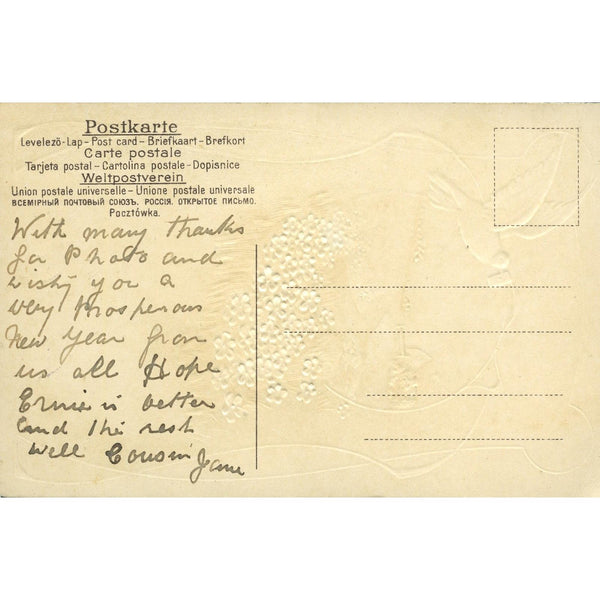 Postkarte
Levelezö-Lap - Post card - Briefkaart - Brefkort
Carte postale
Tarjeta postal - Cartolina postale - Dopisnice
Weltpostverein
Union postale universelle - Unione postale universale
ВСЕМІРНЫЙ ПОЧТОВЫЙ СОЮЗЪ. РОССІЯ. ОТКРЫТОЕ ПИСЬМО.
Pocztówka.
With many thanks
for Photo and
wishg you a
very Prosperous
New Year from
us all Hope
Ernie is better
and the rest
well Cousin Jane